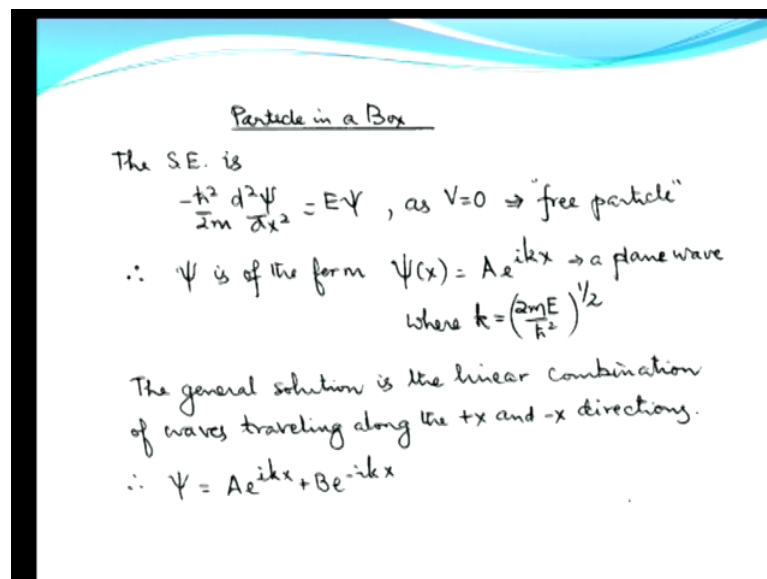 Particle in a Box
The S.E. is
-ħ²/2m d²Ψ/dx² = EΨ , as V=0 ⇒ "free particle"
∴ Ψ is of the form Ψ(x) = Ae^{ikx} → a plane wave
where k = (2mE/ħ²)^{1/2}
The general solution is the linear combination
of waves traveling along the +x and -x directions.
∴ Ψ = Ae^{ikx} + Be^{-ikx}